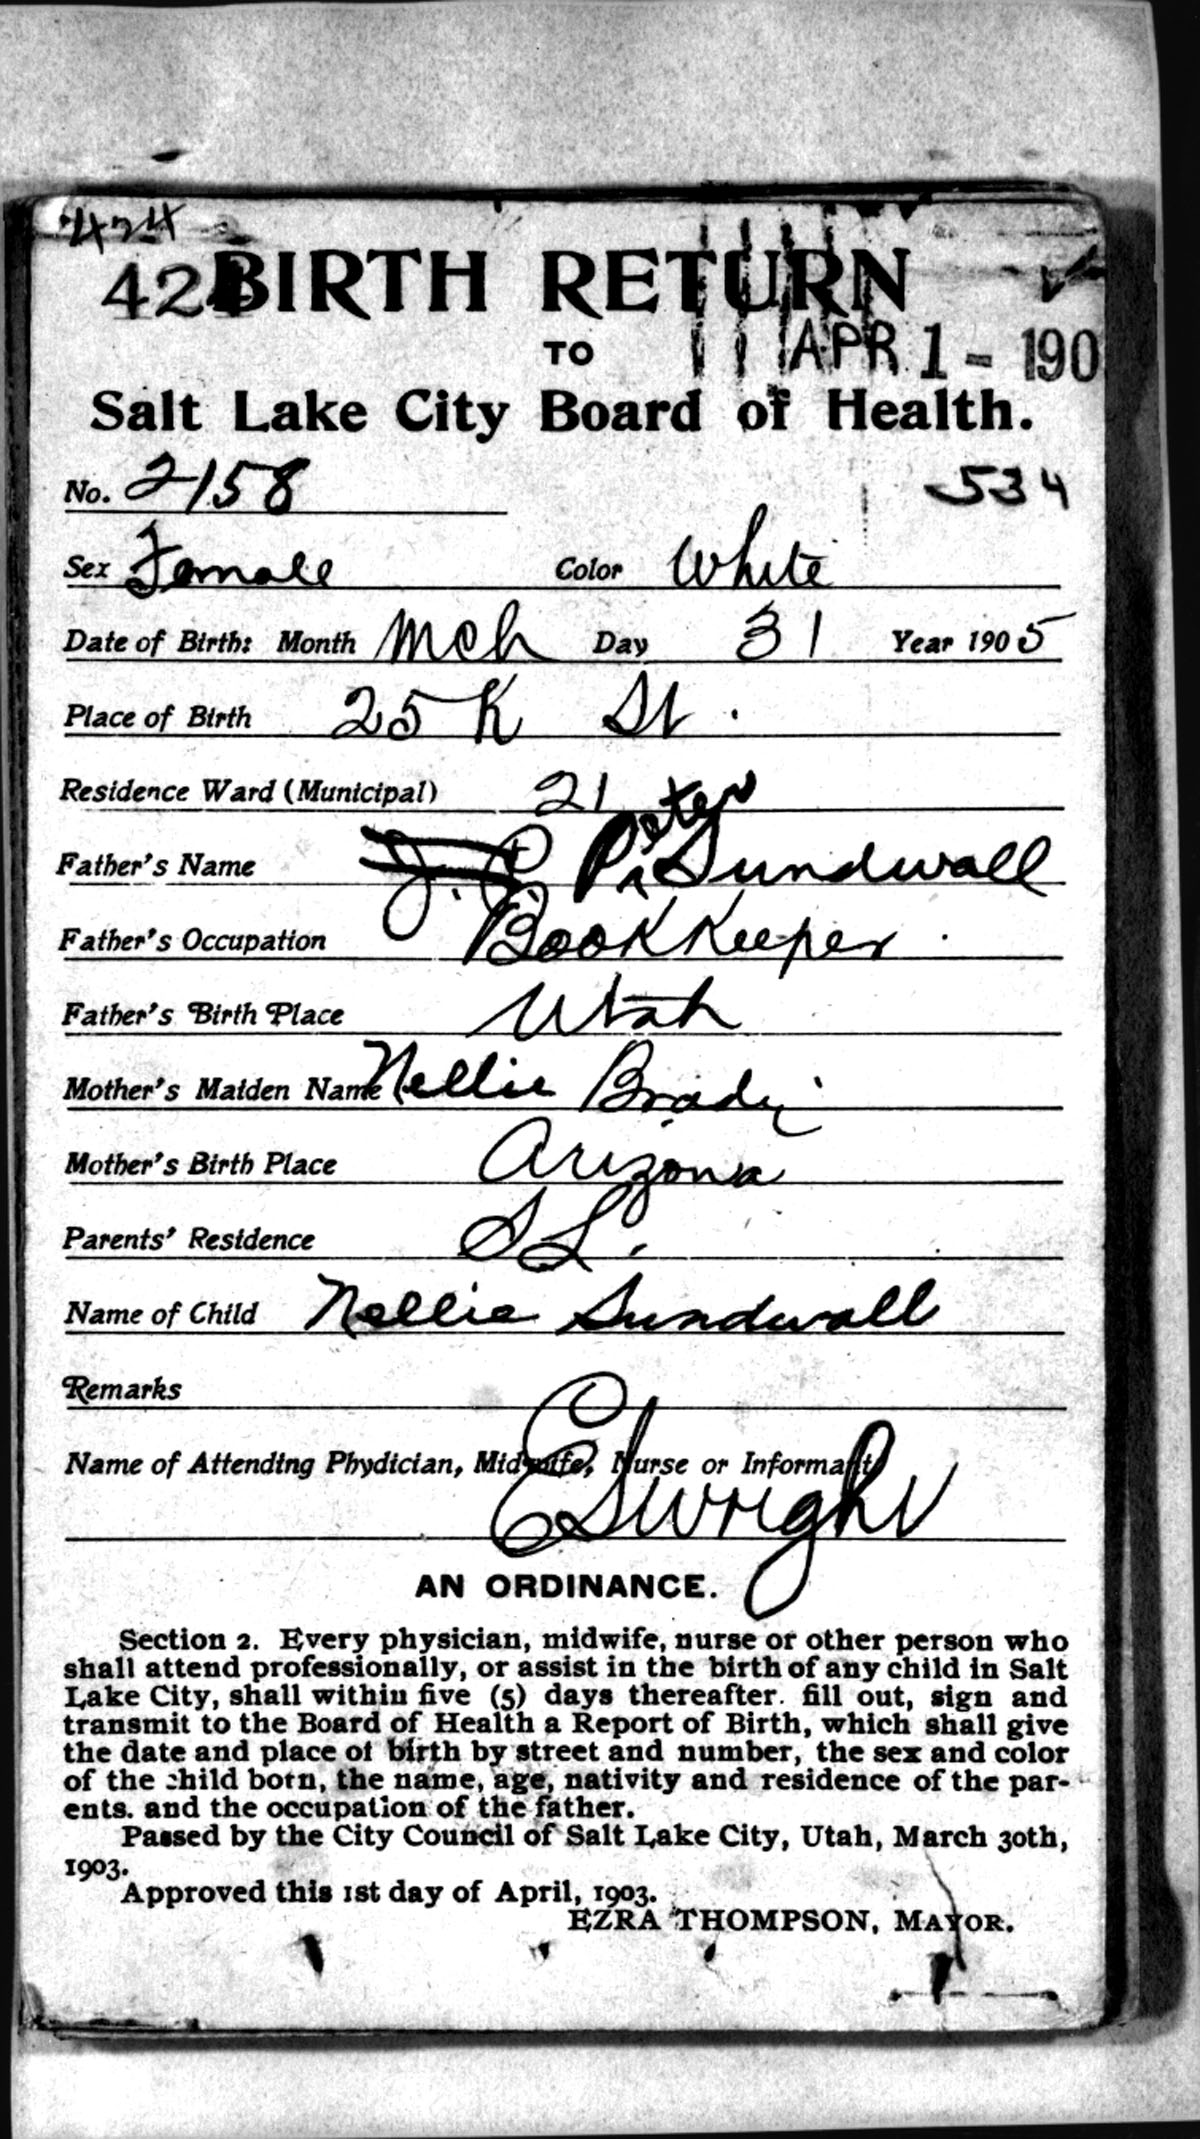 424
424 BIRTH RETURN
TO
APR 1 - 190
Salt Lake City Board of Health.
No. 2158 534
Sex Female Color White
Date of Birth: Month Mch Day 31 Year 1905
Place of Birth 25 K St.
Residence Ward (Municipal) 21
Father's Name J. P. P. Peter Sundwall
Father's Occupation BookKeeper.
Father's Birth Place Utah
Mother's Maiden Name Nellie Brady
Mother's Birth Place Arizona
Parents' Residence SL.
Name of Child Nellie Sundwall
Remarks
Name of Attending Phydician, Midwife, Nurse or Informant
ESWright
AN ORDINANCE.
Section 2. Every physician, midwife, nurse or other person who
shall attend professionally, or assist in the birth of any child in Salt
Lake City, shall within five (5) days thereafter. fill out, sign and
transmit to the Board of Health a Report of Birth, which shall give
the date and place of birth by street and number, the sex and color
of the child born, the name, age, nativity and residence of the par-
ents. and the occupation of the father.
Passed by the City Council of Salt Lake City, Utah, March 30th,
1903.
Approved this 1st day of April, 1903.
EZRA THOMPSON, MAYOR.